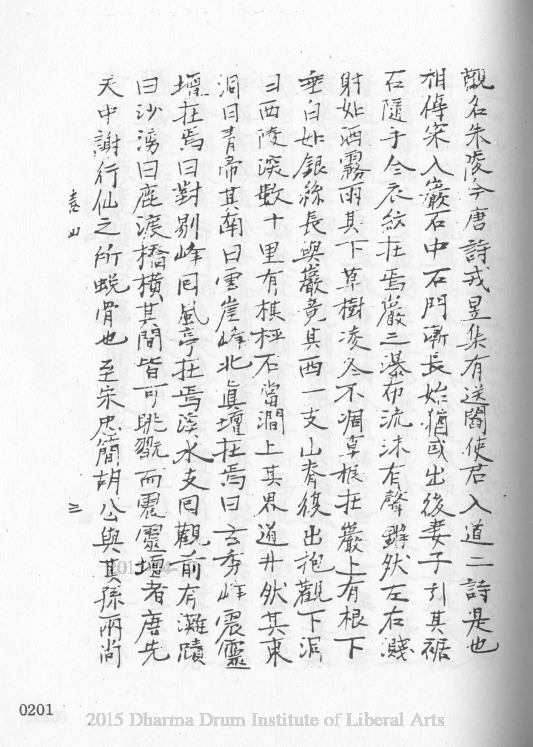 觀名朱陵今唐詩戎昱集有送閻使君入道二詩是也
相傳宋入巖石中石門漸長始猶或出後妻子引其裾
石隨手合衣紋在焉巖三瀑布流沫有聲鏘然左右濺
射如洒霧雨其下草樹凌冬不凋草根在巖上有根下
垂白如銀絲長與巖竟其西一支山脊復出抱觀下洞
曰西陵深數十里有棋枰石當澗上其界道井然其東
洞曰青帝其南曰雲崖峰北真壇在焉曰玄秀峰震靈
壇在焉曰對剔峰曰風亭在焉淥水支曰觀前有灘蹟
曰沙湾曰鹿渡橋橫其間皆可眺翫而震靈壇者唐先
天中謝行仙之所蛻骨也至宋忠簡胡公與其孫兩尚
袁山
三
0201
2015 Dharma Drum Institute of Liberal Arts